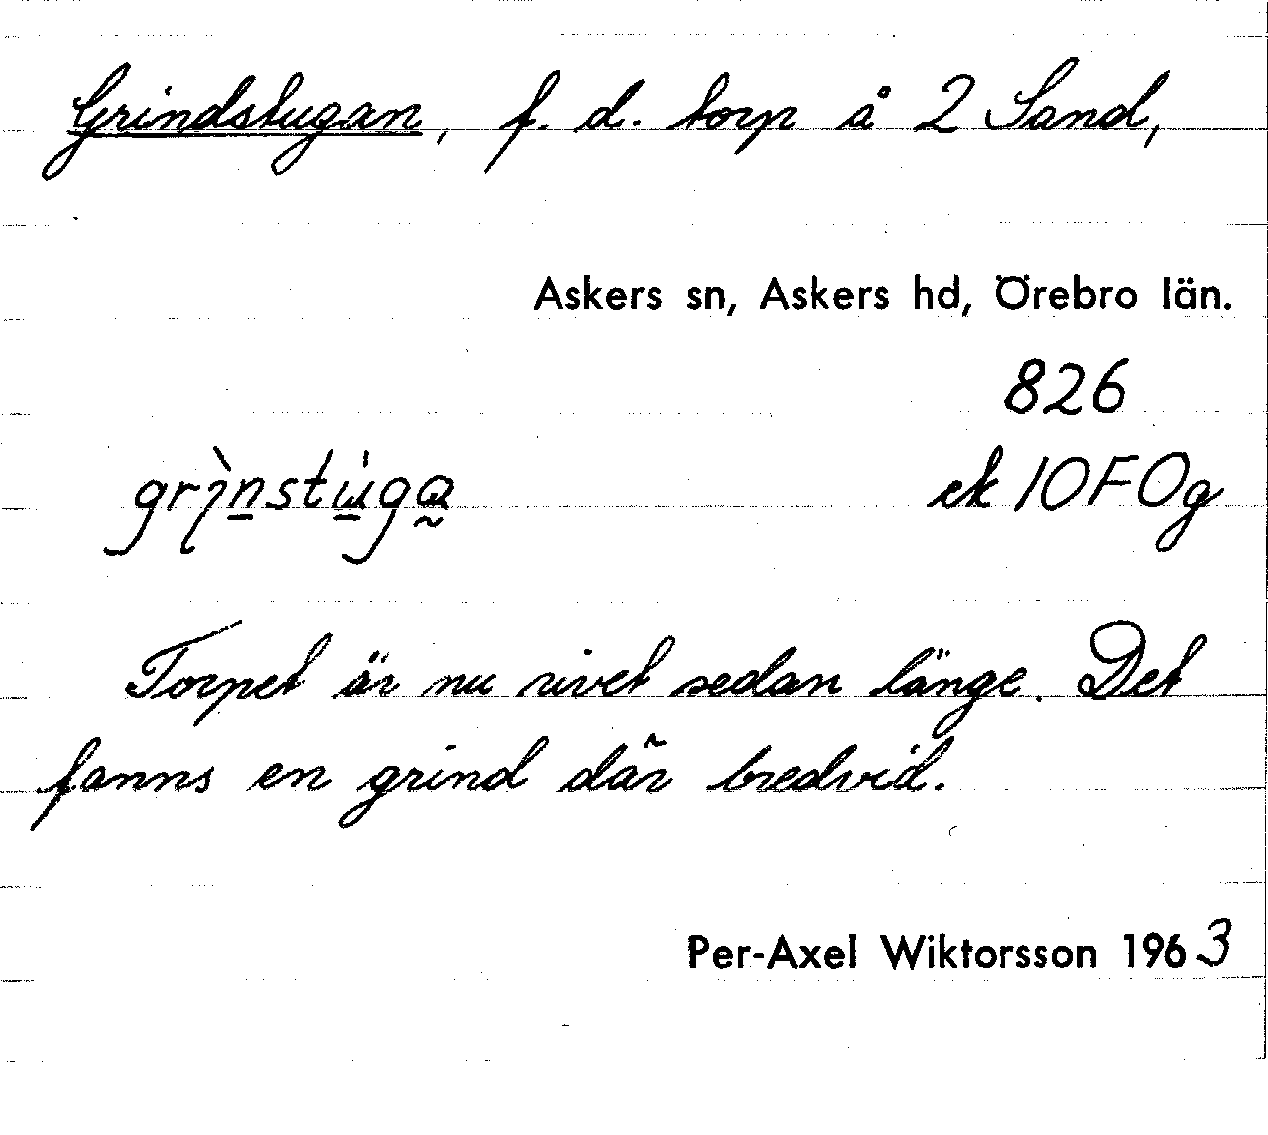 Grindstugan, f. d. torp å 2 Sand,
Askers sn, Askers hd, Örebro län.
826
grı̀nstu̇ga ek 10F0g
Torpet är nu rivet sedan länge. Det
fanns en grind där bredvid.
Per-Axel Wiktorsson 1963